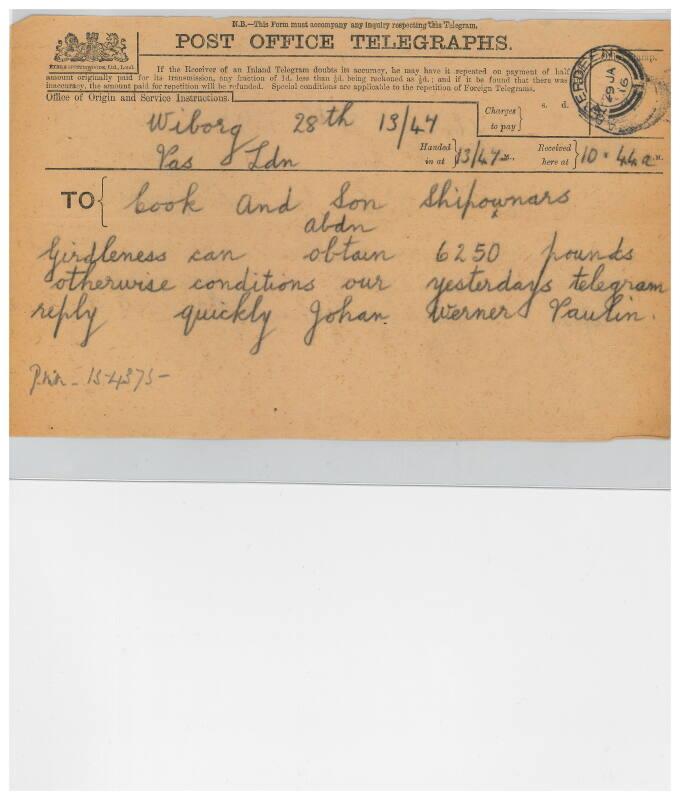 N.B.—This Form must accompany any inquiry respecting this Telegram.
POST OFFICE TELEGRAPHS.
If the Receiver of an Inland Telegram doubts its accuracy, he may have it repeated on payment of half
amount originally paid for its transmission, any fraction of 1d. less than ½d. being reckoned as ½d.; and if it be found that there was
inaccuracy, the amount paid for repetition will be refunded. Special conditions are applicable to the repetition of Foreign Telegrams.
Office of Origin and Service Instructions.
ABERDEEN
29 JA
16
Charges
to pay
s. d.
Wiborg 28th 13/47
Vas Ldn
Handed
in at 13/47 M.,
Received
here at 10.44 a M.
TO
Cook and Son Shipownars
abdn
Girdleness can obtain 6250 pounds
otherwise conditions our yesterdays telegram
reply quickly Johan Werner Paulin.
15-4375-